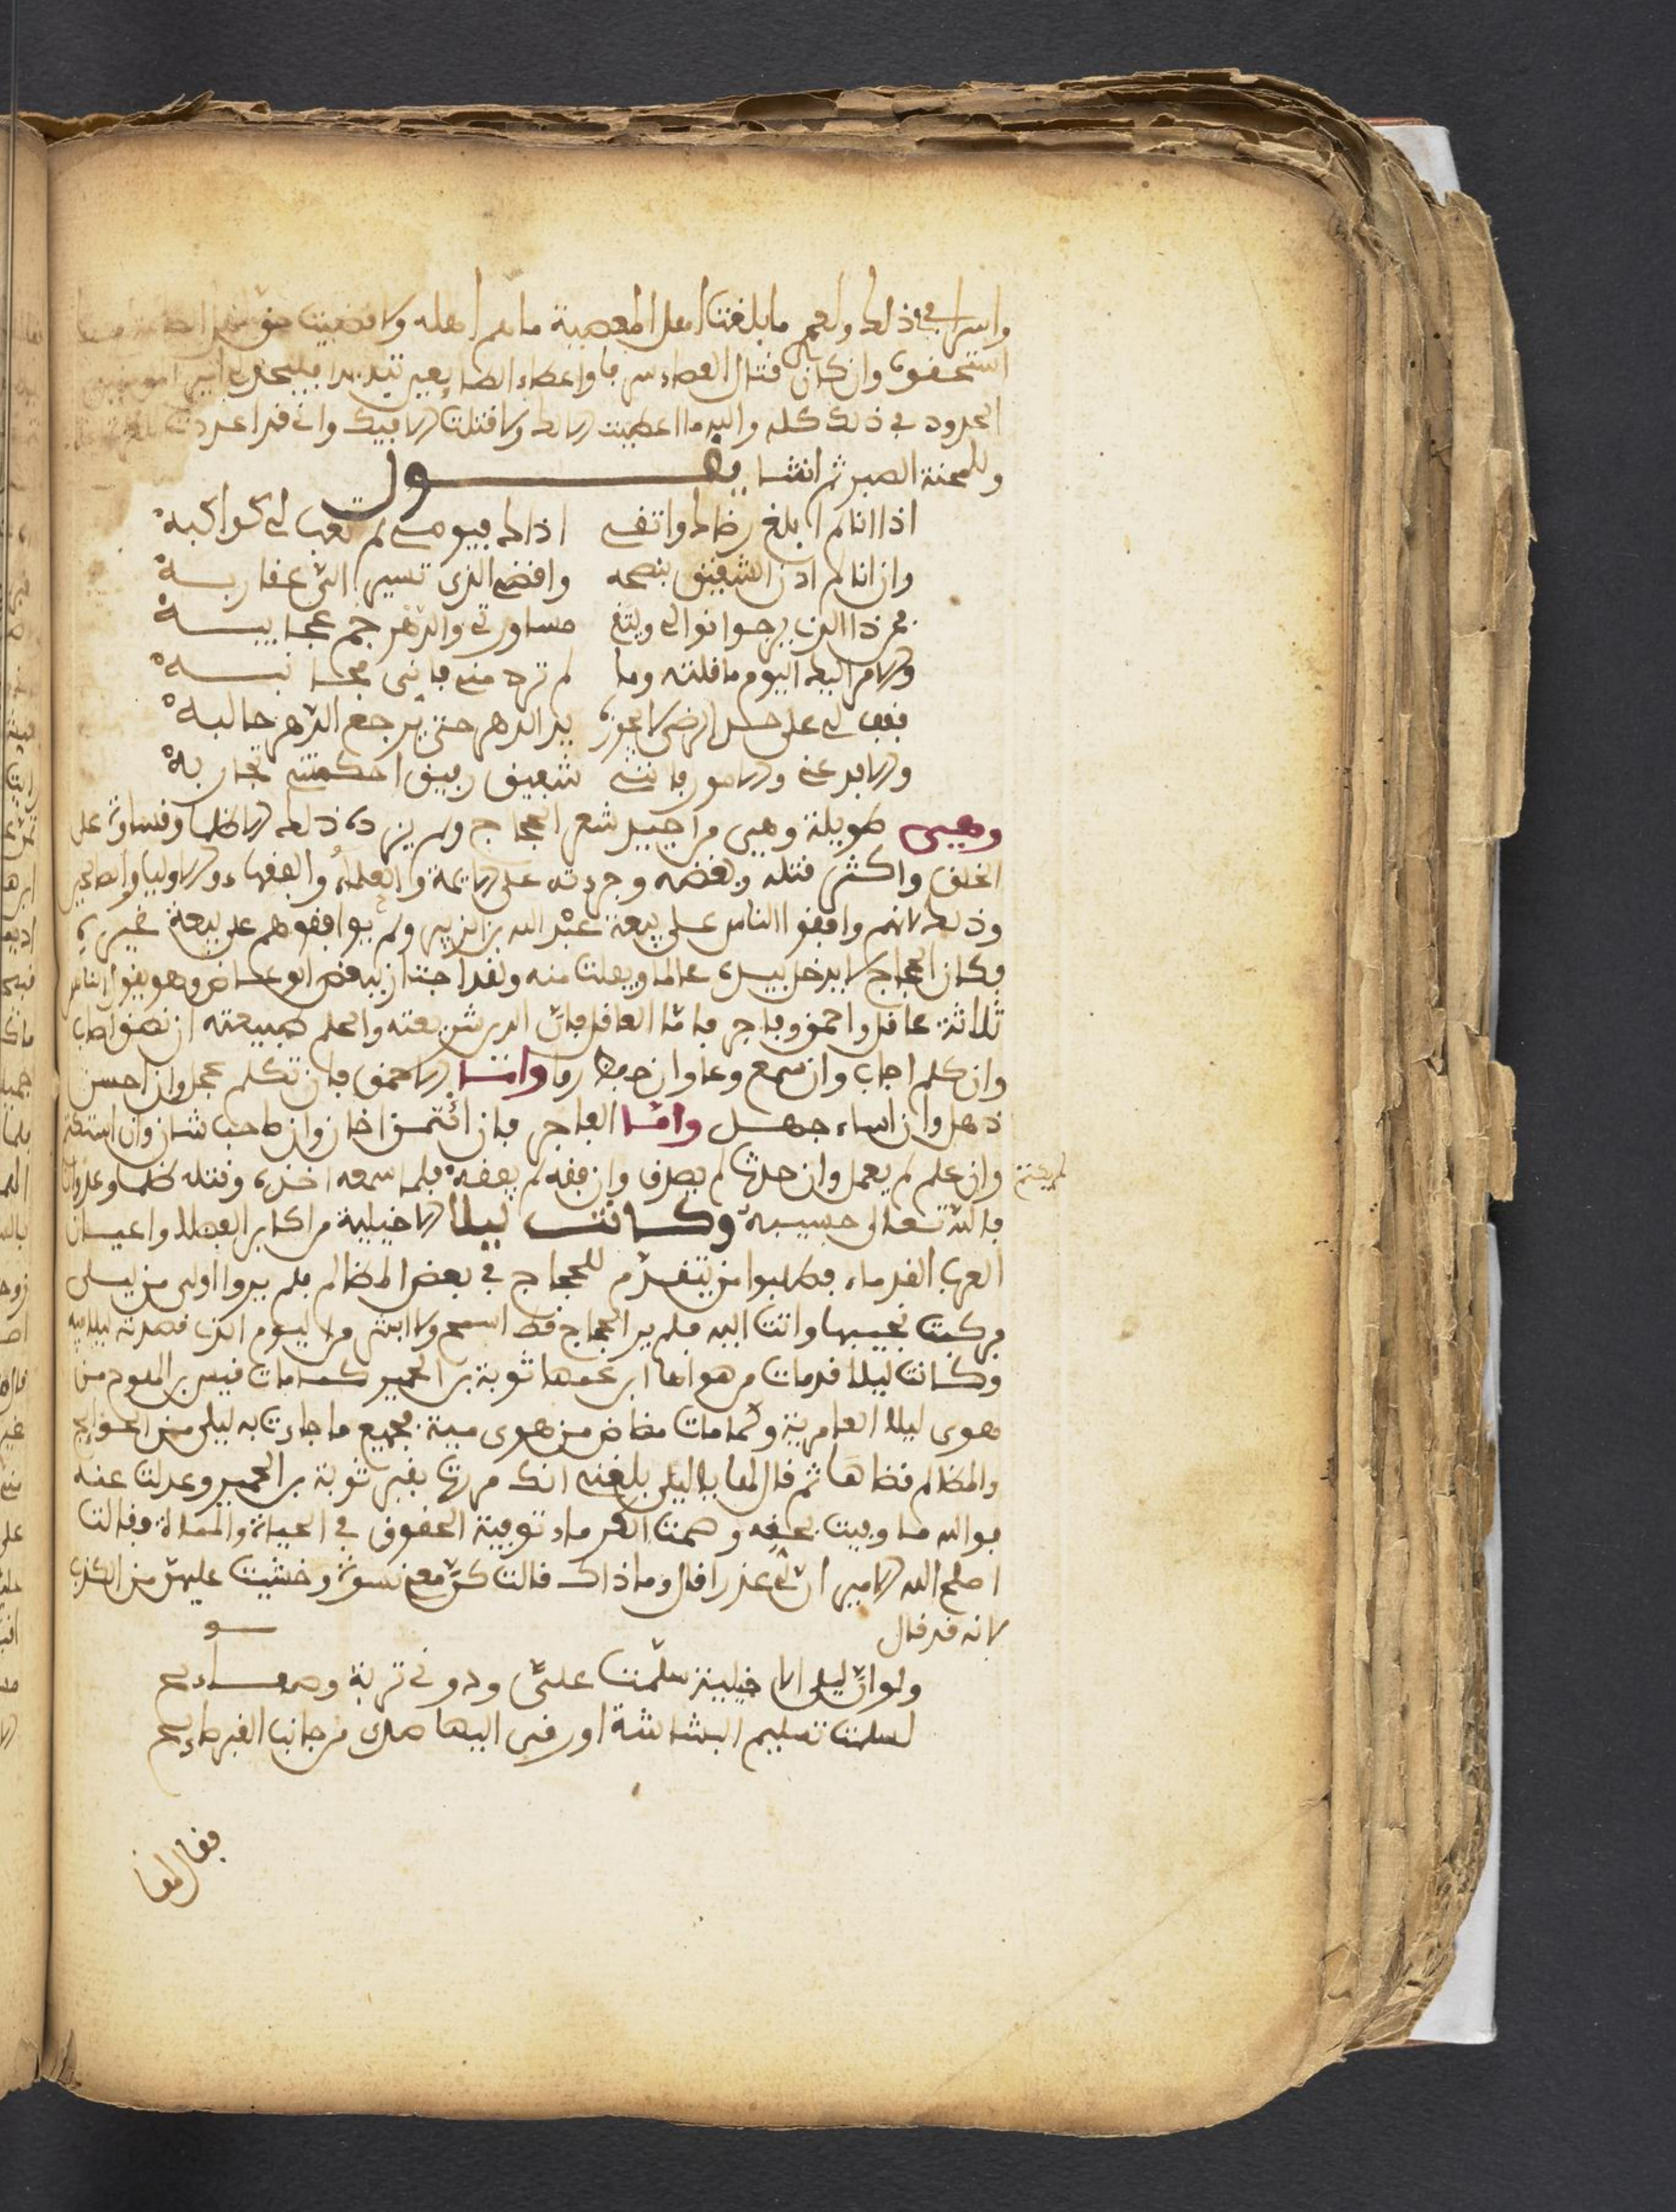 واسرافي في ذلك ولعمري ما بلغت اهل المعصية ما هم اهله ولا قضيت حق اهل الطاعة
استحقوه وان كان قتال العصاة سرفا واعطاء المطيعين تبذيرا فليحد لي امير المومنين
الحدود في ذلك كله والله ما اعطيت الا لك ولا قتلت الا فيك واني قد اعددت
وللمحنة الصبر ثم انشا يقــول
اذا انا لم ابلغ رضاك واتقي اذاك فيومي لم تغب لي كواكبه
وان انا لم ادن الشفيق بنصحه واقضي الذي تسير الي عقاربــه
فمن ذا الذي يرجوا نوالي ويتقي مساورتي والدهر جم عجايبــه
والامر اليك اليوم ما قلته وما لم ترد مني فاني مجانبــه
فقف لي على حد الرضى لا اجوزه يد الدهر حتى يرجع الدهر حالبه
والا فدعني والامور فانني شفيق رفيق احكمتني تجاربه
وهيى طويلة وهيى من اجيد شعر الحجاج ولم يزده ذلك الا ظلما وقساوة على
الخلق واكثر قتله وبغضه وجرءته على الايمة والعلماء والفقهاء والاوليا والصالحين
وذلك لانهم وافقوا الناس على بيعة عبد الله بن الزبير ولم يوافقوهم على بيعة غيره
فكان الحجاج لا يدخل بيده عالما ويفلت منه ولقد اجتاز ببعض الوعاض وهو يقول الناس
ثلاثة عاقل واحمق وفاجر فاما العاقل فان الدين شريعته والحلم طبيعته ان نطق اصاب
وان كلم اجاب وان سمع وعا وان ... رما وامــا الاحمق فان تكلم عجل وان احسن
ذهل وان اساء جهــل وامــا الفاجر فان ائتمن خان وان صاحب شان وان استكتم
لم يكتم وان علم لم يعمل وان حدث لم يصدق وان فقه لم يفقه فلما سمعه اخذه وقتله ظلما وعدوانا
فالله تعالى حسيبه وكــانت ليلا الاخيلية من اكابر الفضلا واعيان
العرب القدماء فطلبوا من يتقدم للحجاج في بعض المظالم فلم يروا اولى من ليلى
فركبت نجيبها واتت اليه فلم ير الحجاج قط اسمح ولا ابش من اليوم الذي قصدته ليلا فيه
وكانت ليلا قد مات من هواها ابن عمها توبة بن الحمير كما مات قيس بن الملوح من
هوى ليلا العامرية وكما مات مضاض من هوى مية فجميع ما جاءت به ليلى من الحوايج
والمظالم قضاها ثم قال لها يا ليلى بلغني انك مررت بقبر توبة بن الحمير وعدلت عنه
فوالله ما وفيت بحقه وصمت القدماء توفية الحقوق في الحياة والممات فقالت
اصلح الله الامير ان لي عذرا قال وما ذاك قالت كن معي نسوة وخشيت عليهن من الكذب
لانه قد قال
ولو ان ليلى الاخيلية سلمت علي ودوني تربة وصفــايح
لسلمت تسليم البشاشة او رقى اليها صدى من جانب القبر صايح
فقال لها